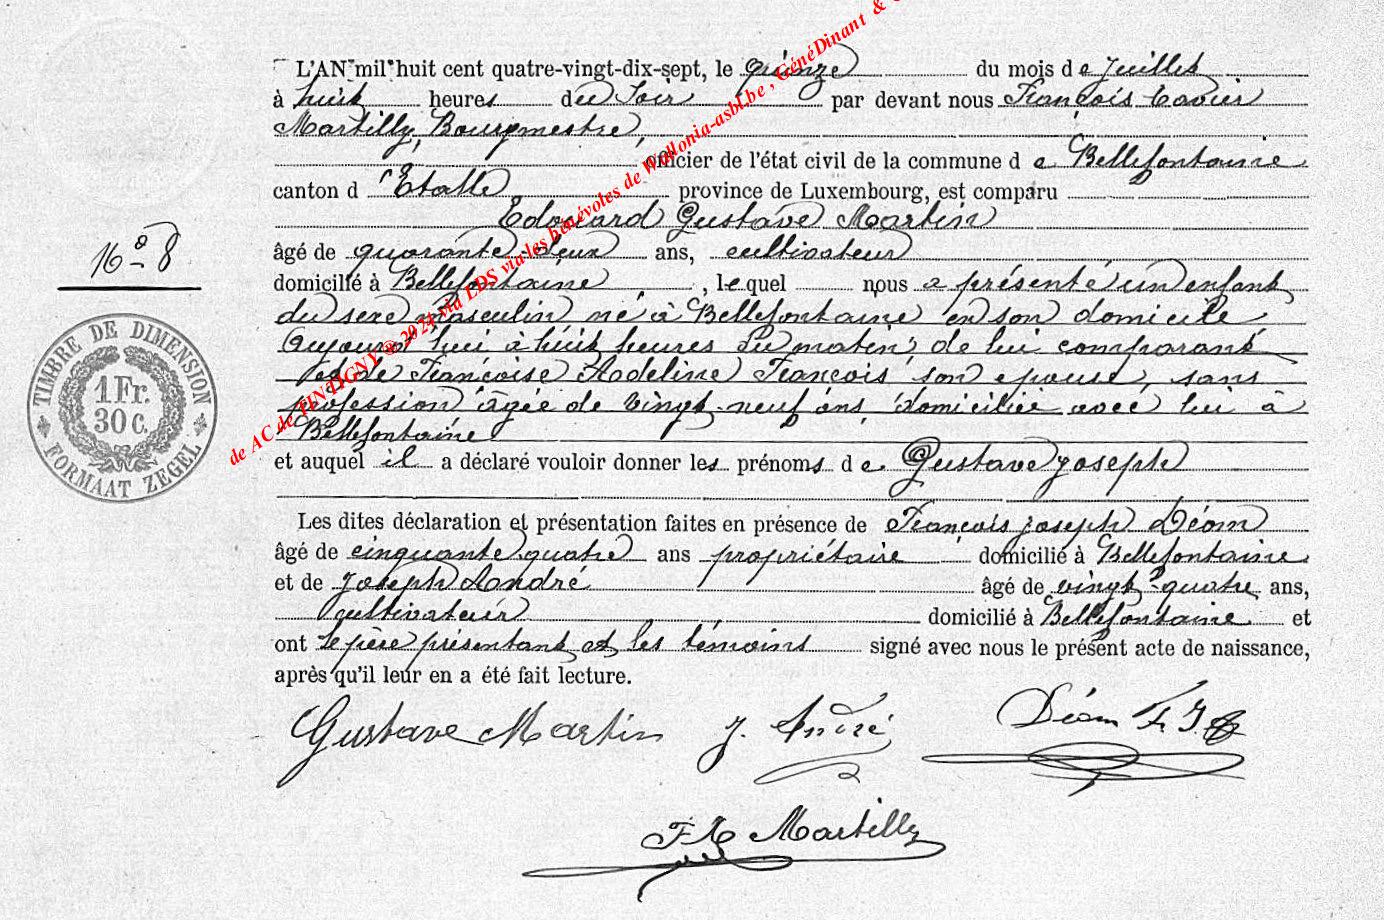 L'AN mil huit cent quatre-vingt-dix-sept, le quinze du mois de Juillet
à huit heures du soir par devant nous François Xavier
Martilly, Bourgmestre,
officier de l'état civil de la commune de Bellefontaine
canton d'Etalle province de Luxembourg, est comparu
Edouard Gustave Martin
âgé de quarante-deux ans, cultivateur
domicilié à Bellefontaine, lequel nous a présenté un enfant
du sexe masculin né à Bellefontaine en son domicile
aujourd'hui à huit heures du matin, de lui comparant
et de Françoise Adeline François son epouse, sans
profession âgée de vingt-neuf ans, domiciliée avec lui à
Bellefontaine
et auquel il a déclaré vouloir donner les prénoms de Gustave Joseph
Les dites déclaration et présentation faites en présence de François Joseph Déom
âgé de cinquante quatre ans propriétaire domicilié à Bellefontaine
et de Joseph André âgé de vingt-quatre ans,
cultivateur domicilié à Bellefontaine et
ont le père présentant et les témoins signé avec nous le présent acte de naissance,
après qu'il leur en a été fait lecture.
Gustave Martin J. André Déom F. J.
F X Martilly
16º 8
TIMBRE DE DIMENSION
1 Fr.
30 c.
FORMAAT ZEGEL
de AC de TINTIGNY @ 2024 via LDS via les bénévoles de Wallonia-asbl.be, GénéDinant &